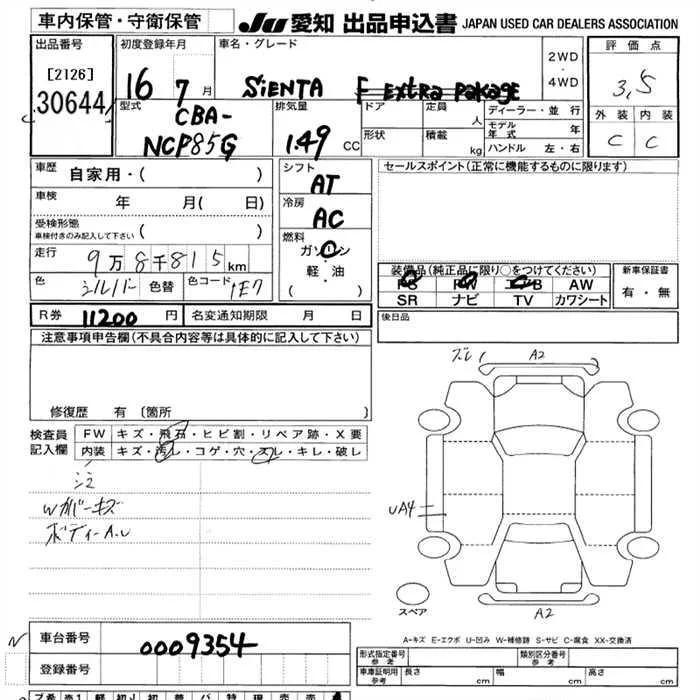 車内保管・守衛保管
JU 愛知 出品申込書 JAPAN USED CAR DEALERS ASSOCIATION
出品番号
[2126]
30644
初度登録年月
16 7月
車名・グレード
SIENTA F EXtra PaKage
2WD・4WD
評価点
3,5
外装 内装
C C
型式
CBA-
NCP85G
排気量
1.49 CC
ドア 定員 人
形状 積載 kg
ディーラー・並行
モデル年式 年
ハンドル 左・右
車歴
自家用・( )
車検 年 月( 日)
受検形態
車検付きのみ記入して下さい ( )
走行 9万8千815km
色 シルバー 色替 色コード 1E7
シフト
AT
冷房
AC
燃料
ガソリン・
軽・油
( )
セールスポイント(正常に機能するものに限ります)
装備品(純正品に限り○をつけてください)
PS PW エアB AW
SR ナビ TV カワシート
新車保証書
有・無
R券 11200 円 名変通知期限 月 日
後日品
注意事項申告欄(不具合内容等は具体的に記入して下さい)
修復歴 有〔箇所 〕
検査員記入欄
FW キズ・飛石・ヒビ割・リペア跡・X要
内装 キズ・汚レ・コゲ・穴・スレ・キレ・破レ
注
Wカバーキズ
ボディーA.U
ズレ A2
UA4
スペア
A2
A-キズ E-エクボ U-凹み W-補修跡 S-サビ C-腐食 XX-交換済
車台番号 0009354
登録番号
形式指定番号 参考
類別区分番号 参考
車庫証明用 参考 長さ cm 幅 cm 高さ cm